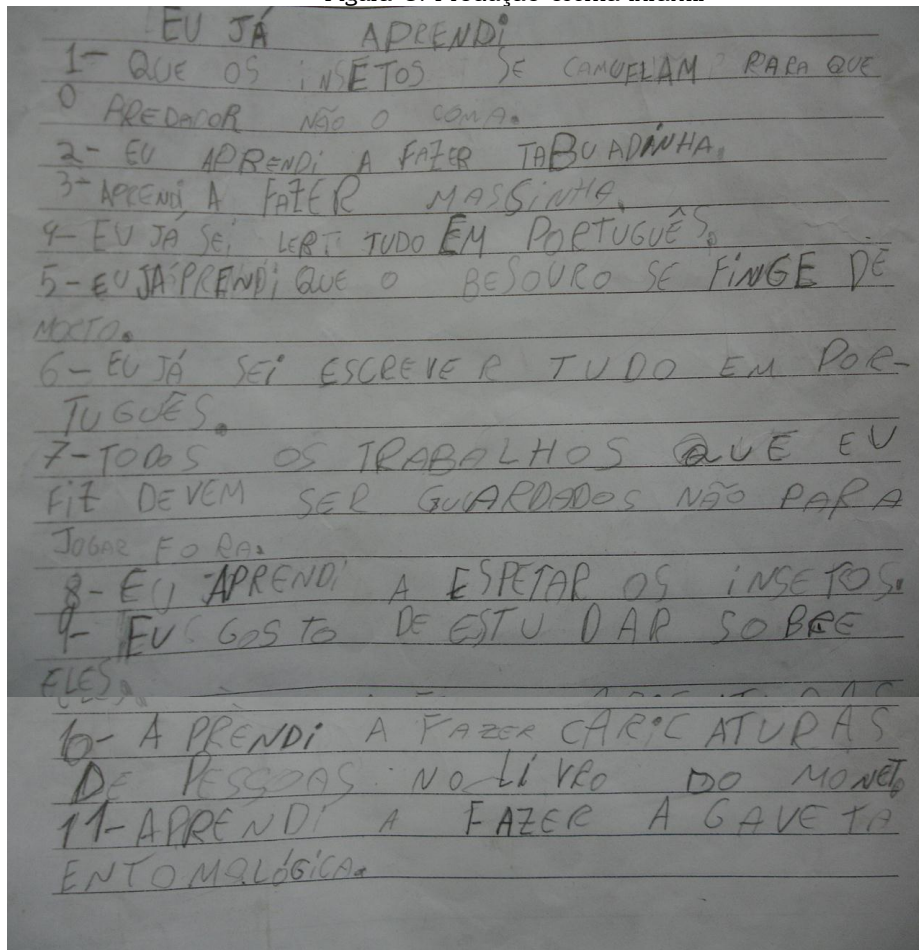 EU JÁ APRENDI
1- QUE OS INSETOS SE CAMUFLAM PARA QUE
O PREDADOR NÃO O COMA.
2- EU APRENDI A FAZER TABUADINHA.
3- APRENDI A FAZER MASSINHA.
4- EU JÁ SEI LER TUDO EM PORTUGUÊS.
5- EU JÁ APRENDI QUE O BESOURO SE FINGE DE
MORTO.
6- EU JÁ SEI ESCREVER TUDO EM POR-
TUGUÊS.
7- TODOS OS TRABALHOS QUE EU
FIZ DEVEM SER GUARDADOS NÃO PARA
JOGAR FORA.
8- EU APRENDI A ESPETAR OS INSETOS.
9- EU GOSTO DE ESTUDAR SOBRE
ELES.
10- APRENDI A FAZER CARICATURAS
DE PESSOAS NO LIVRO DO MONET.
11- APRENDI A FAZER A GAVETA
ENTOMOLÓGICA.